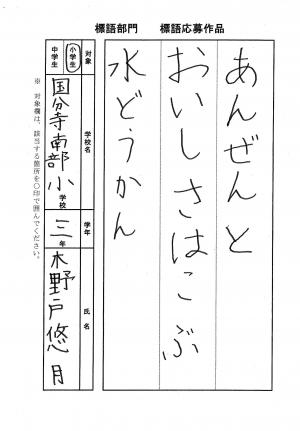 標語部門　標語応募作品
あんぜんと
おいしさはこぶ
水どうかん
対象
小学生
中学生
学校名
国分寺南部小学校
学年
三年
氏名
木野戸悠月
※ 対象欄は、該当する箇所を〇印で囲んでください。